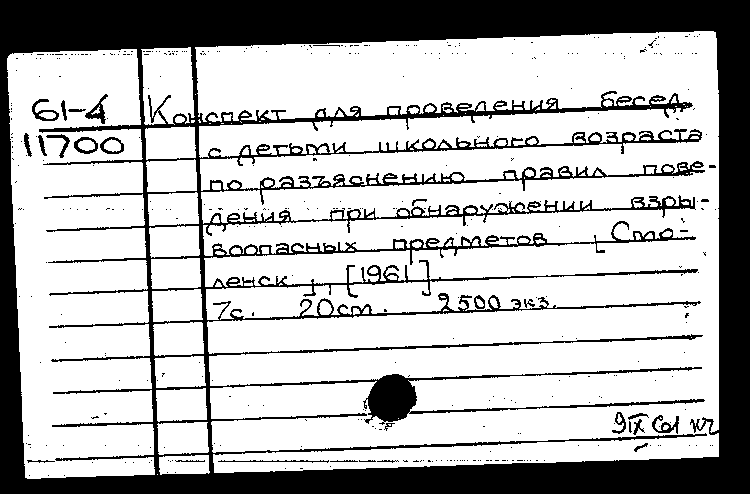 61-4 Конспект для проведения бесед
11700 с детьми школьного возраста
по разъяснению правил пове-
дения при обнаружении взры-
воопасных предметов [Смо-
ленск], [1961].
7с. 20см. 2500 экз.
9 IX 61